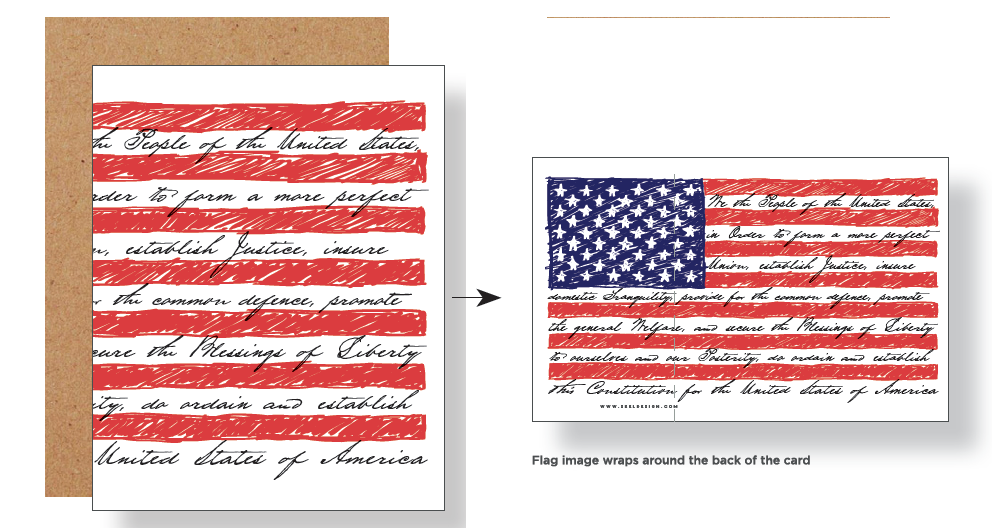 the People of the United States,
rder to form a more perfect
n, establish Justice, insure
r the common defence, promote
cure the Blessings of Liberty
ity, do ordain and establish
United States of America
We the People of the United States,
in Order to form a more perfect
Union, establish Justice, insure
domestic Tranquility, provide for the common defence, promote
the general Welfare, and secure the Blessings of Liberty
to ourselves and our Posterity, do ordain and establish
this Constitution for the United States of America
WWW.SEELDESIGN.COM
Flag image wraps around the back of the card